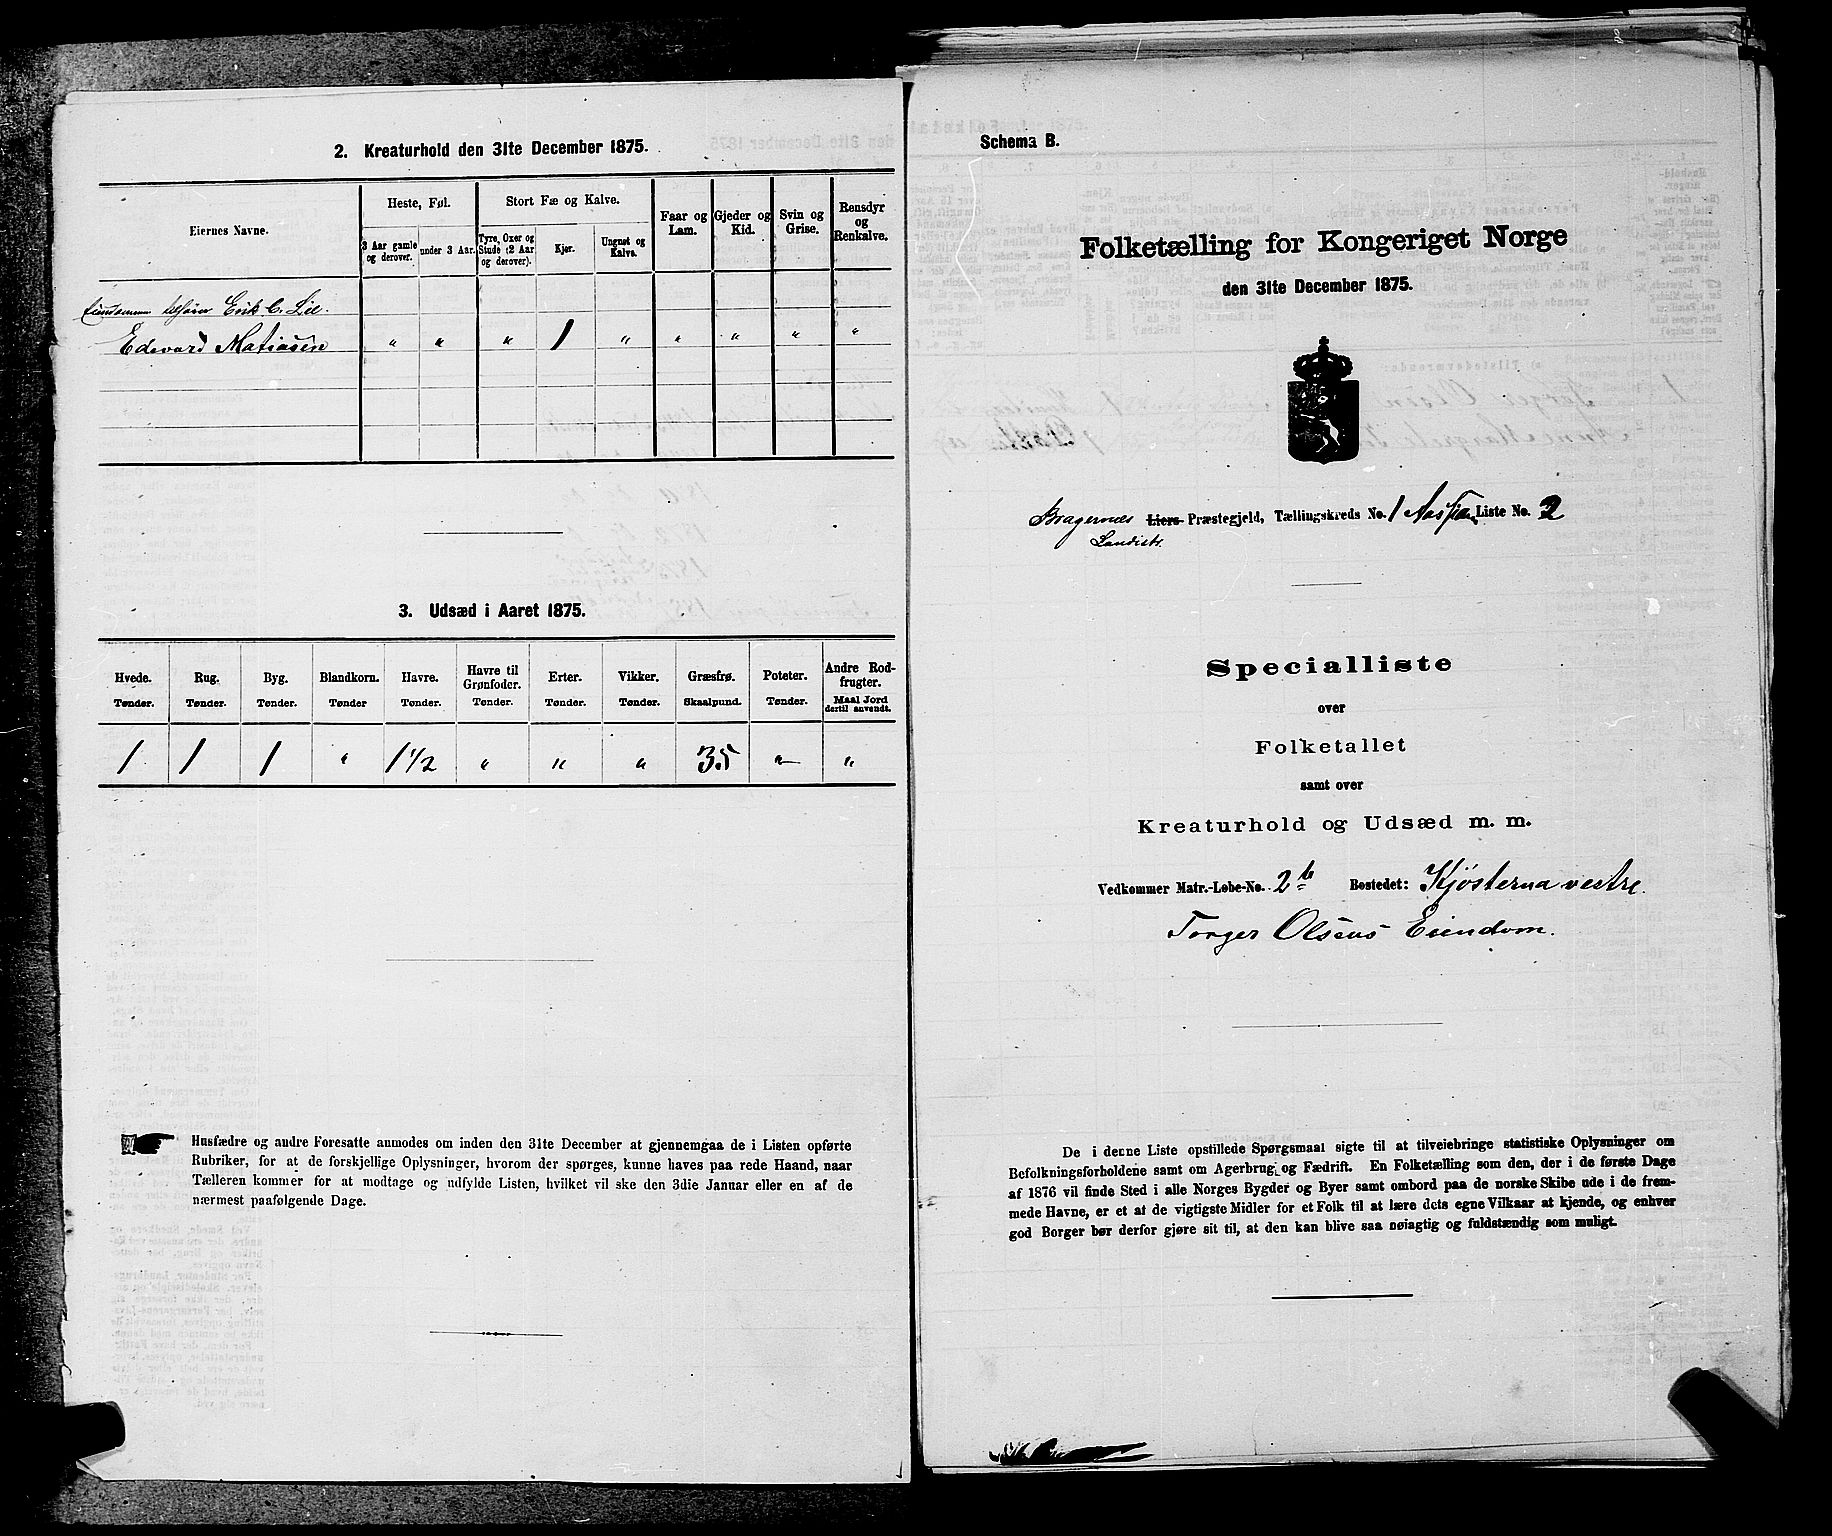 2. Kreaturhold den 31te December 1875.
Eiernes Navne.
Heste, Føl.
Stort Fæ og Kalve.
Faar og Lam.
Gjeder og Kid.
Svin og Grise.
Rensdyr og Renkalve.
3 Aar gamle og derover.
under 3 Aar.
Tyre, Oxer og Stude (2 Aar og derover).
Kjør.
Ungnøt og Kalve.
Eiendommen tilhører Erik C. Lie.
Edevard Matiasen " " " 1 " " " " "
3. Udsæd i Aaret 1875.
Hvede. Rug. Byg. Blandkorn. Havre. Havre til Grønfoder. Erter. Vikker. Græsfrø. Poteter. Andre Rodfrugter.
Tønder. Tønder. Tønder. Tønder Tønder. Tønder. Tønder. Tønder. Skaalpund. Tønder. Maal Jord dertil anvendt.
1 1 1 " 1 1/2 " " " 35 " "
Husfædre og andre Foresatte anmodes om inden den 31te December at gjennemgaa de i Listen opførte
Rubriker, for at de forskjellige Oplysninger, hvorom der spørges, kunne haves paa rede Haand, naar
Tælleren kommer for at modtage og udfylde Listen, hvilket vil ske den 3die Januar eller en af de
nærmest paafølgende Dage.
Schema B.
Folketælling for Kongeriget Norge
den 31te December 1875.
Bragernæs Liers Præstegjeld, Tællingskreds No. 1 Liste No. 2
Landistr.
Specialliste
over
Folketallet
samt over
Kreaturhold og Udsæd m. m.
Vedkommer Matr.-Løbe-No. 2b Bostedet: Kjøsterna vestre.
Torger Olsens Eiendom.
De i denne Liste opstillede Spørgsmaal sigte til at tilveiebringe statistiske Oplysninger om
Befolkningsforholdene samt om Agerbrug og Fædrift. En Folketælling som den, der i de første Dage
af 1876 vil finde Sted i alle Norges Bygder og Byer samt ombord paa de norske Skibe ude i de frem-
mede Havne, er et af de vigtigste Midler for et Folk til at lære dets egne Vilkaar at kjende, og enhver
god Borger bør derfor gjøre sit til, at den kan blive saa nøiagtig og fuldstændig som muligt.